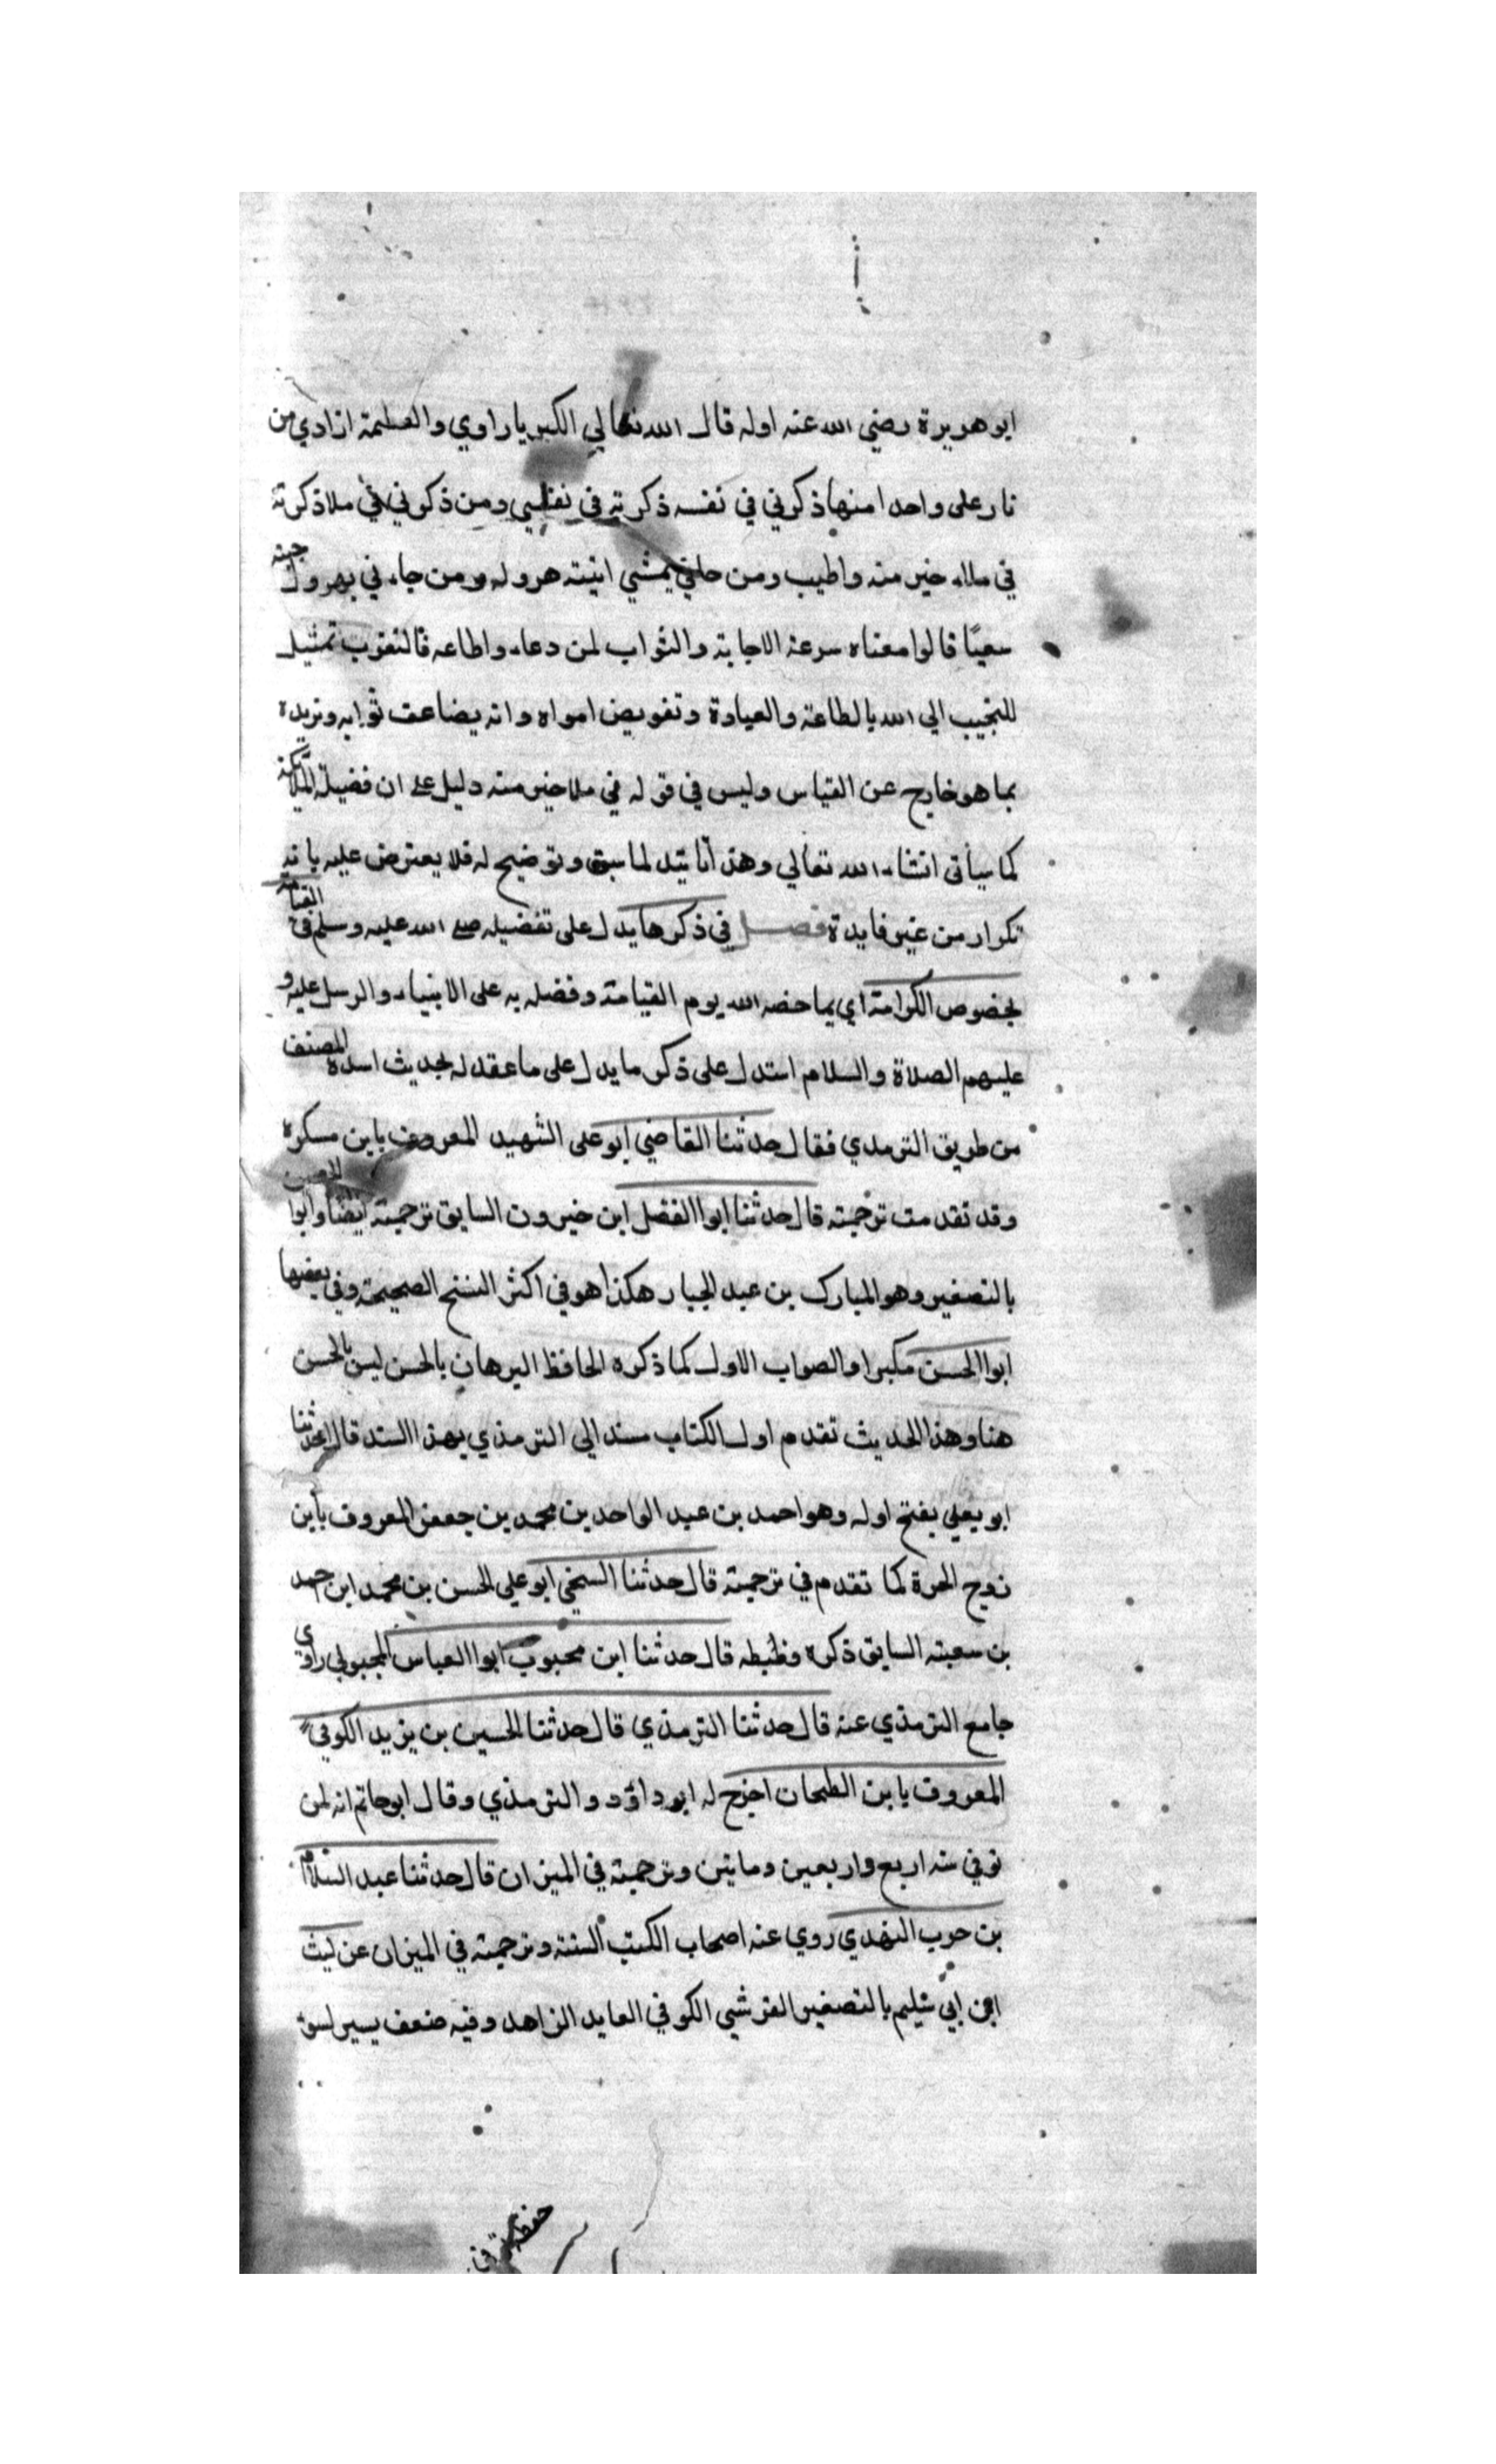 ابو هريرة رضي الله عنه اوله قال الله تعالي الكبريا راوي والعظمة ازاري من
نار على واحدا منها ذكرني في نفسه ذكرته في نفسي ومن ذكرني في ملا ذكرته
في ملاء خير منه واطيب ومن يمشي اتيته هروله ومن جاء ني يهرول جيته
سعيًا قالوا معناه سرعة الاجابة والثواب لمن دعاء واطاعه فالتقرب تمثيل
الي الله بالطاعة والعبادة وتفويض امواه وانه يضاعف ثوابه ويزيده
بما هو خارج عن القياس وليس في قوله في ملا خير منه دليل على ان فضيلة الملائكة
كما سياتى انشاء الله تعالي وهذا تاييد لما سبق وتوضيح له فلا يعترض عليه بانه
تكرار من غير فايدة فصل في ذكر ما يدل على تفضيله صلى الله عليه وسلم في القيامة
بخصوص الكرامة اي بما خصه الله يوم القيامة وفضله به على الانبياء والرسل عليه و
عليهم الصلاة والسلام استدل على ذكر ما يدل على ما عقد له بحديث اسنده المصنف
من طريق الترمدي فقال حدثنا القاضي ابو على الشهيد المعروف بابن سكره
وقد تقدمت ترجمته قال حدثنا ابوا الفضل ابن خيرون السابق ترجمته ايضا وابوا الحسين
بالتصغير وهو المبارك بن عبد الجبار هكذا هو في اكثر النسخ الصحيحة وفي بعضها
ابوا الحسن مكبرا والصواب الاول كما ذكره الحافظ البرهان بالحسن ليس بالحسن
هنا وهذا الحديث تقدم اول الكتاب مسند الي الترمذي بهذا السند قال حدثنا
ابو يعلي بفتح اوله وهو احمد بن عبد الواحد بن محمد بن جعفر المعروف بابن
زوج الحرة كما تقدم في ترجمته قال حدثنا السنجي ابو علي الحسن بن محمد ابن احمد
بن سعبته السابق ذكره وضبطه قال حدثنا ابن محبوب ابوا العباس المحبوبي راوي
جامع الترمذي عنه قال حدثنا الترمذي قال حدثنا الحسين بن يزيد الكوفي
المعروف بابن الطحان اخرج له ابو داؤد والترمذي وقال ابو حاتم انه لين
توفي سنه اربع واربعين وماتين وترجمته في الميزان قال حدثنا عبد السلام
بن حرب النهدي روي عنه اصحاب الكتب الستة وترجمته في الميزان عن ليث
ابن ابي سليم بالتصغير القرشي الكوفي العابد الزاهد وفيه ضعف يسير لسوء
حفظه